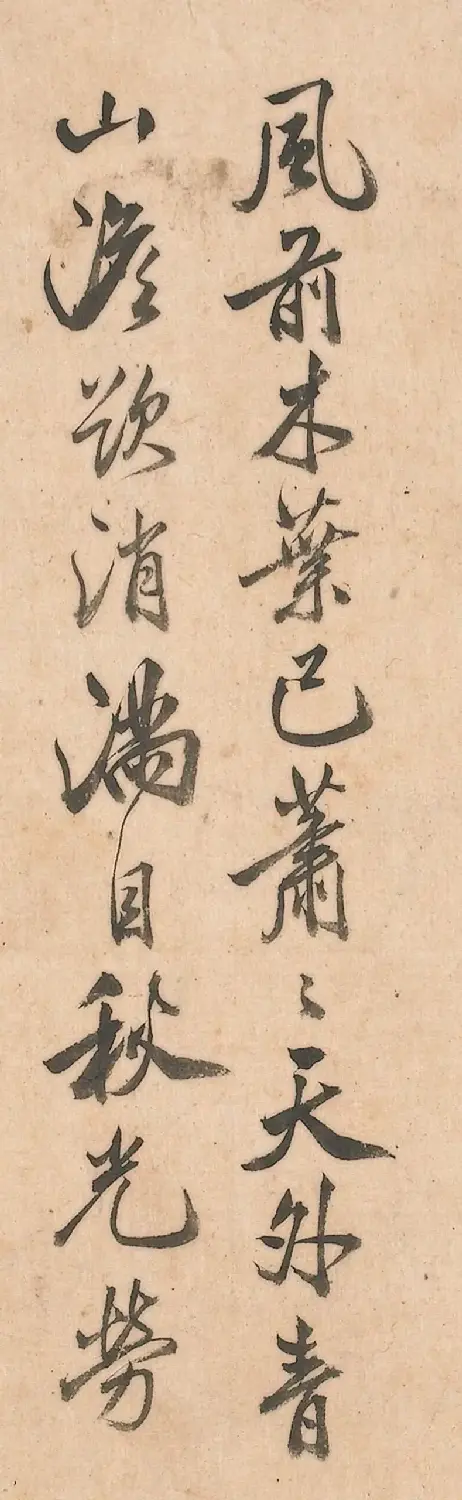 風前木葉已蕭〻天外青
山澹欲消滿目秋光勞